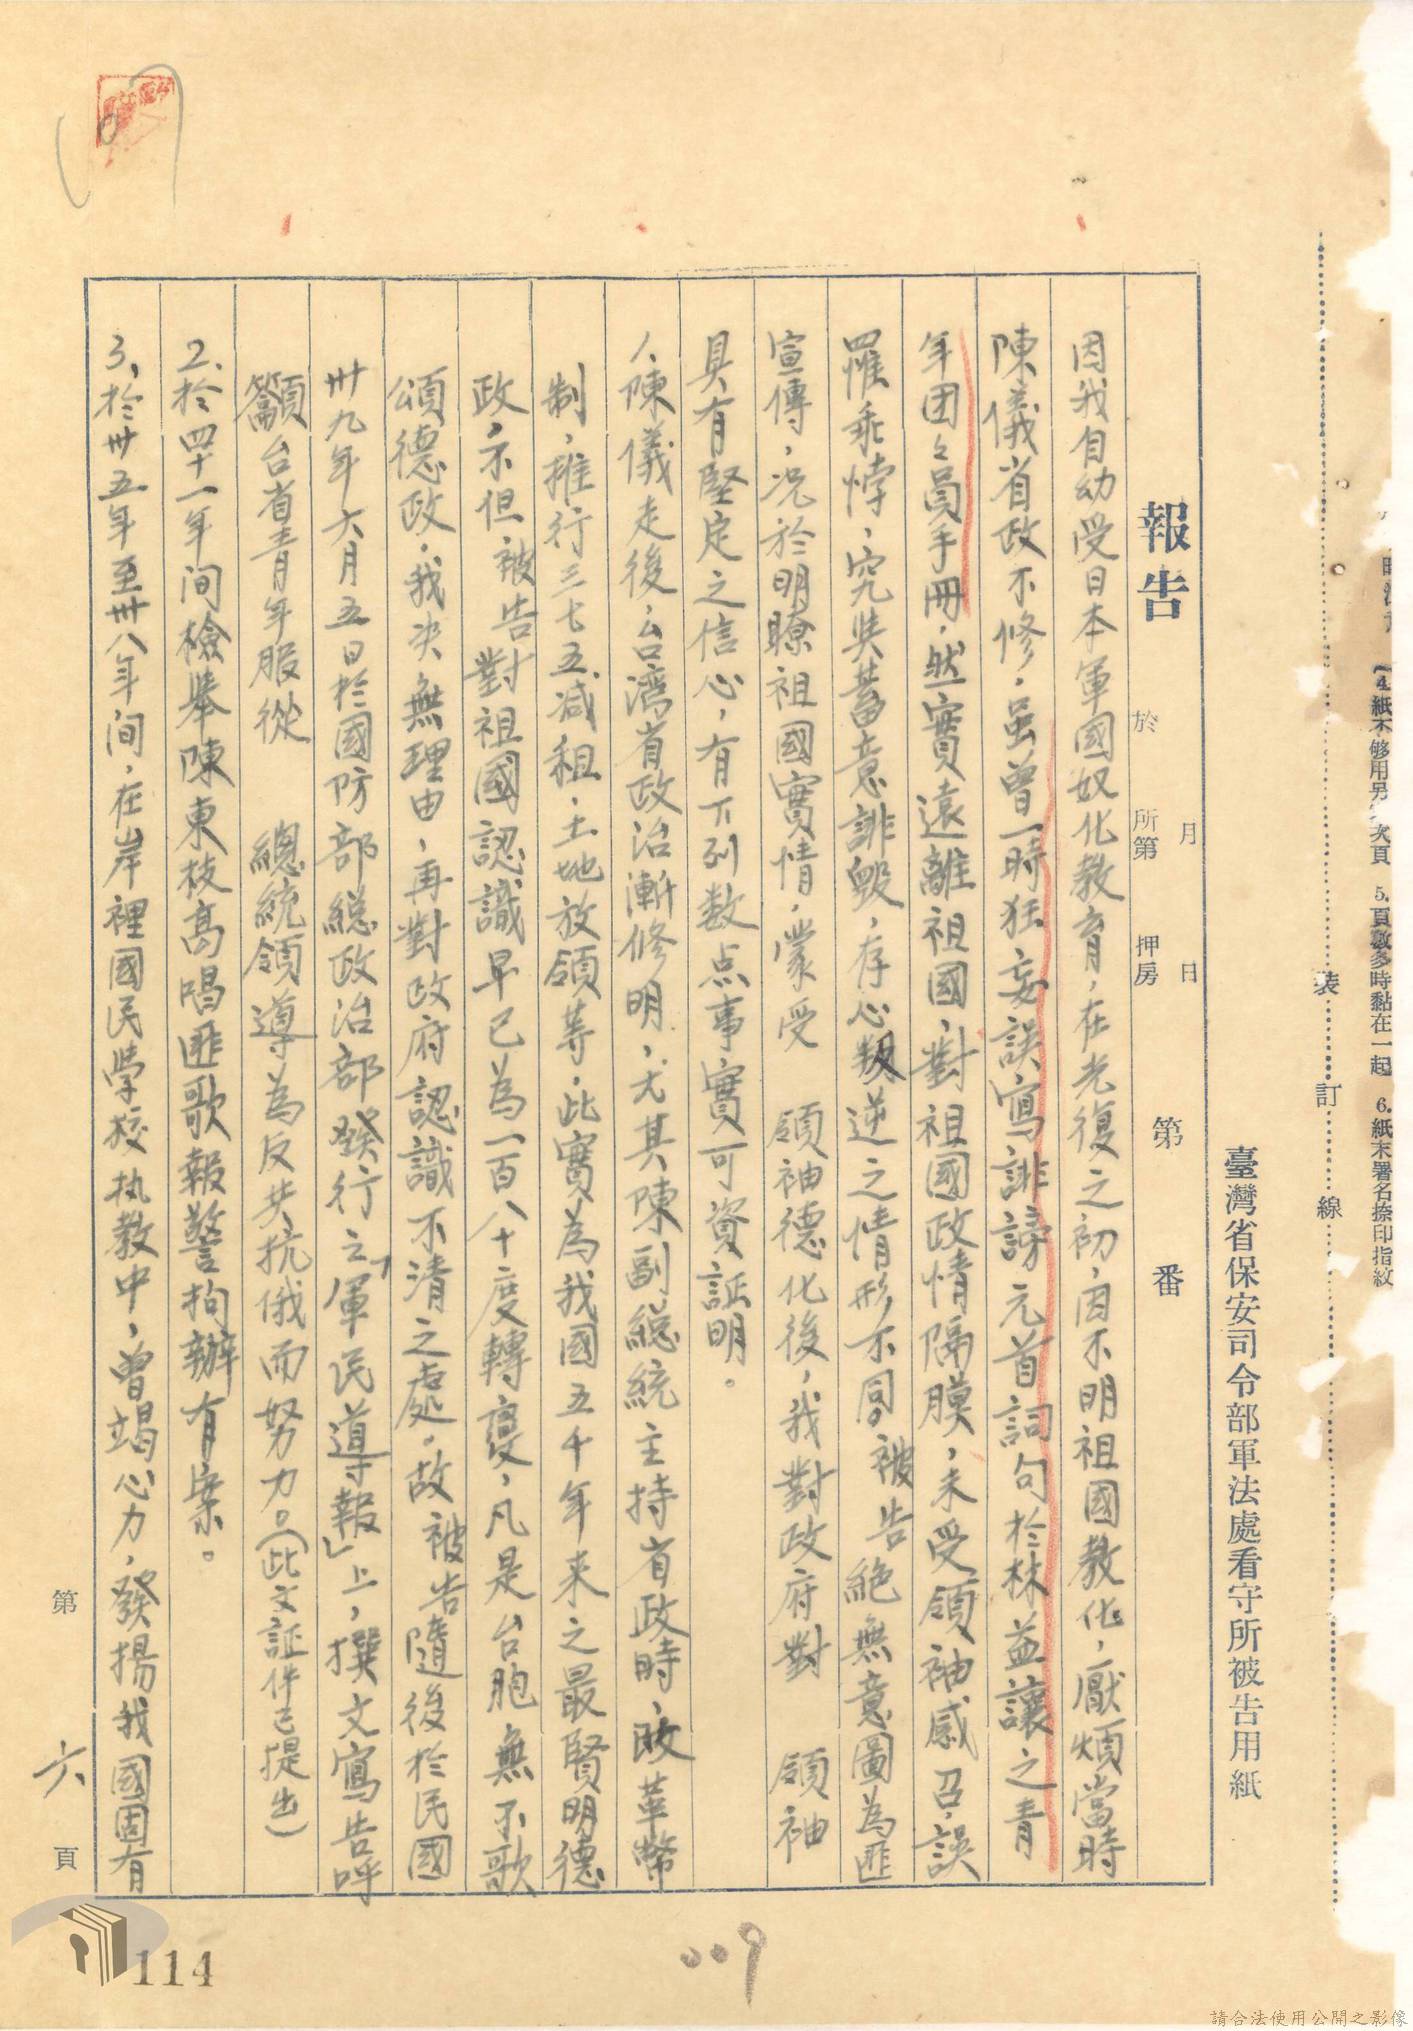 4.紙不够用另 次頁 5.頁數多時黏在一起 6.紙末署名捺印指紋
装 訂 線
臺灣省保安司令部軍法處看守所被告用紙
報告
月 日
於 所第 押房
第 番
因我自幼受日本軍國奴化教育，在光復之初，因不明祖國教化，厭煩當時
陳儀省政不修，虽曾一時狂妄誤寫誹謗元首詞句於林益讓之青
年团々員手冊，然實遠離祖國，對祖國政情隔膜，未受領袖感召，誤
罹乖悖，究與蓄意誹毀，存心叛逆之情形不同。被告絕無意圖為匪
宣傳，况於明瞭祖國實情，蒙受 領袖德化後，我對政府對 領袖
具有堅定之信心，有下列数点事實可資証明。
1、陳儀走後，台湾省政治漸修明，尤其陳副総統主持省政時，改革幣
制，推行三七五减租，土地放領等，此實為我國五千年來之最賢明德
政，不但被告對祖國認識早已為一百八十度轉變，凡是台胞無不歌
頌德政，我决無理由，再對政府認識不清之處，故被告隨後於民國
卅九年六月五日於國防部総政治部發行之「軍民導報」上，撰文寫告呼
籲台省青年服從 總統領導為反共抗俄而努力。（此文証件已提出）
2.於四十一年间檢舉陳東枝高唱匪歌報警拘辦有案。
3、於卅五年至卅八年间，在岸裡國民學校执教中，曾竭心力，發揚我國固有
第 六 頁
114
009
請合法使用公開之影像